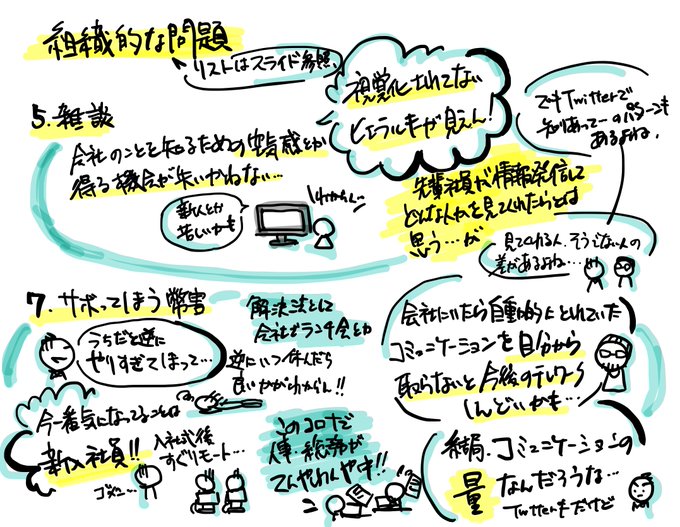 組織的な問題
リストはスライド参照、
視覚化されてない
ヒエラルキが見えん!
でもTwitterで
知りあってーのパターンも
あるよね、
5. 雑談
会社のことを知るための空気感とか
得る機会が失いかねない…
新人とか
苦しいかも
わからん…
先輩社員が情報発信して
どんな人かを見てくれたらとは
思う…が
見てくれる人、そうじゃない人の
差があるよね…
7. サボってしまう弊害
うちだと逆に
やりすぎてほって…
解決法として
会社でランチ会とか
逆にいつ休んだら
良いかがわからん!!
会社にいたら自動的にとれていた
コミュニケーションを自分から
取らないと今後のテレワーク
しんどいかも…
今一番気になってることは
新入社員!!
入社式後
すぐリモート…
ゴメン…
このコロナで
人事・総務が
てんやわんや中!!
結局、コミュニケーションの
量なんだろうな…
Twitterもだけど